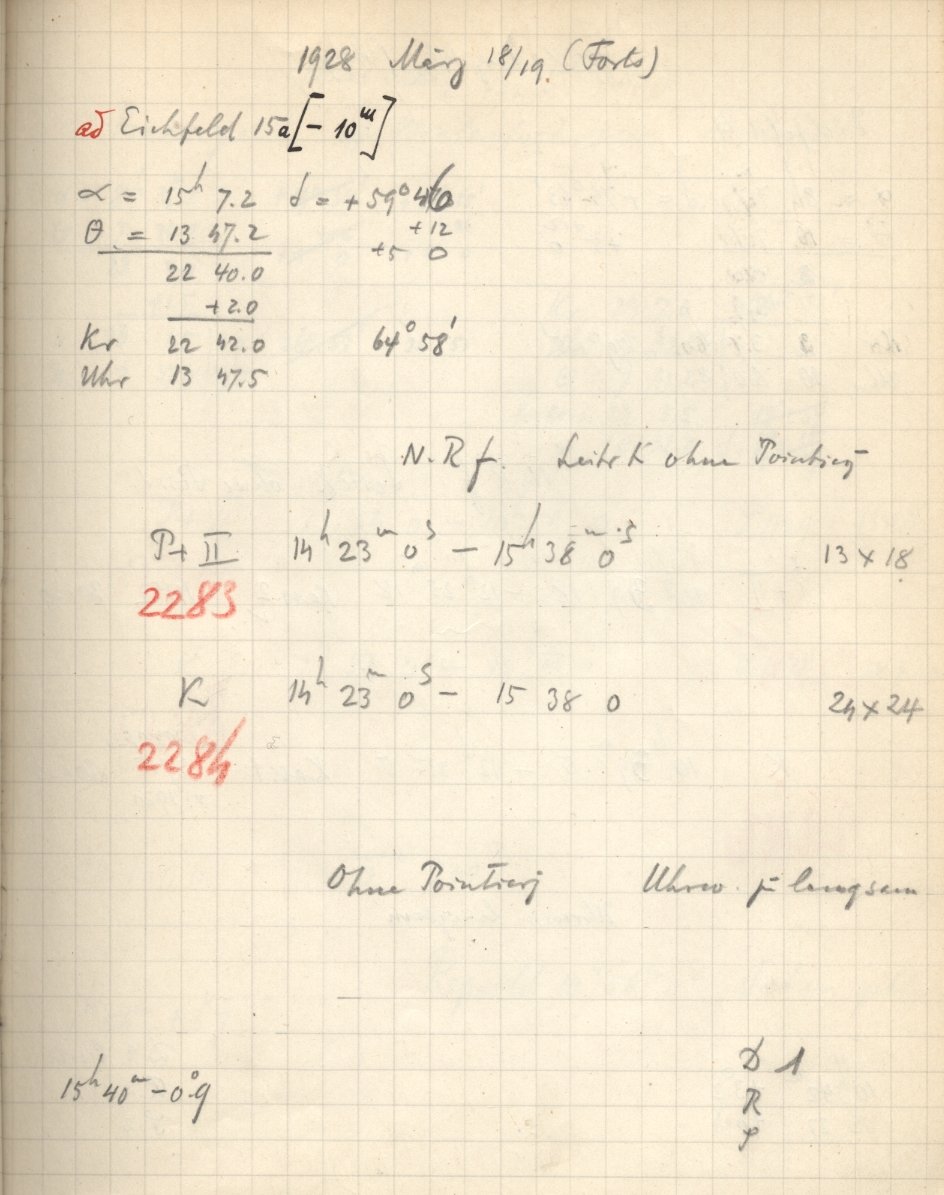 1928 März 18/19. (Forts)
ad Eichfeld 15a [– 10ᵐ]
α = 15ʰ 7.2 δ = +59° 46
θ = 13 47.2 +12
+5 0
22 40.0
+2.0
Kr 22 42.0 64° 58'
Uhr 13 47.5
N. R f. Leitr K ohne Pointierg
Pt II 14ʰ 23ᵐ 0ˢ – 15ʰ 38ᵐ 0ˢ 13 × 18
2283
K 14ʰ 23ᵐ 0ˢ – 15 38 0 24 × 24
2284
Ohne Pointierg Uhrw. zu langsam
15ʰ 40ᵐ – 0°.9
D 1
R